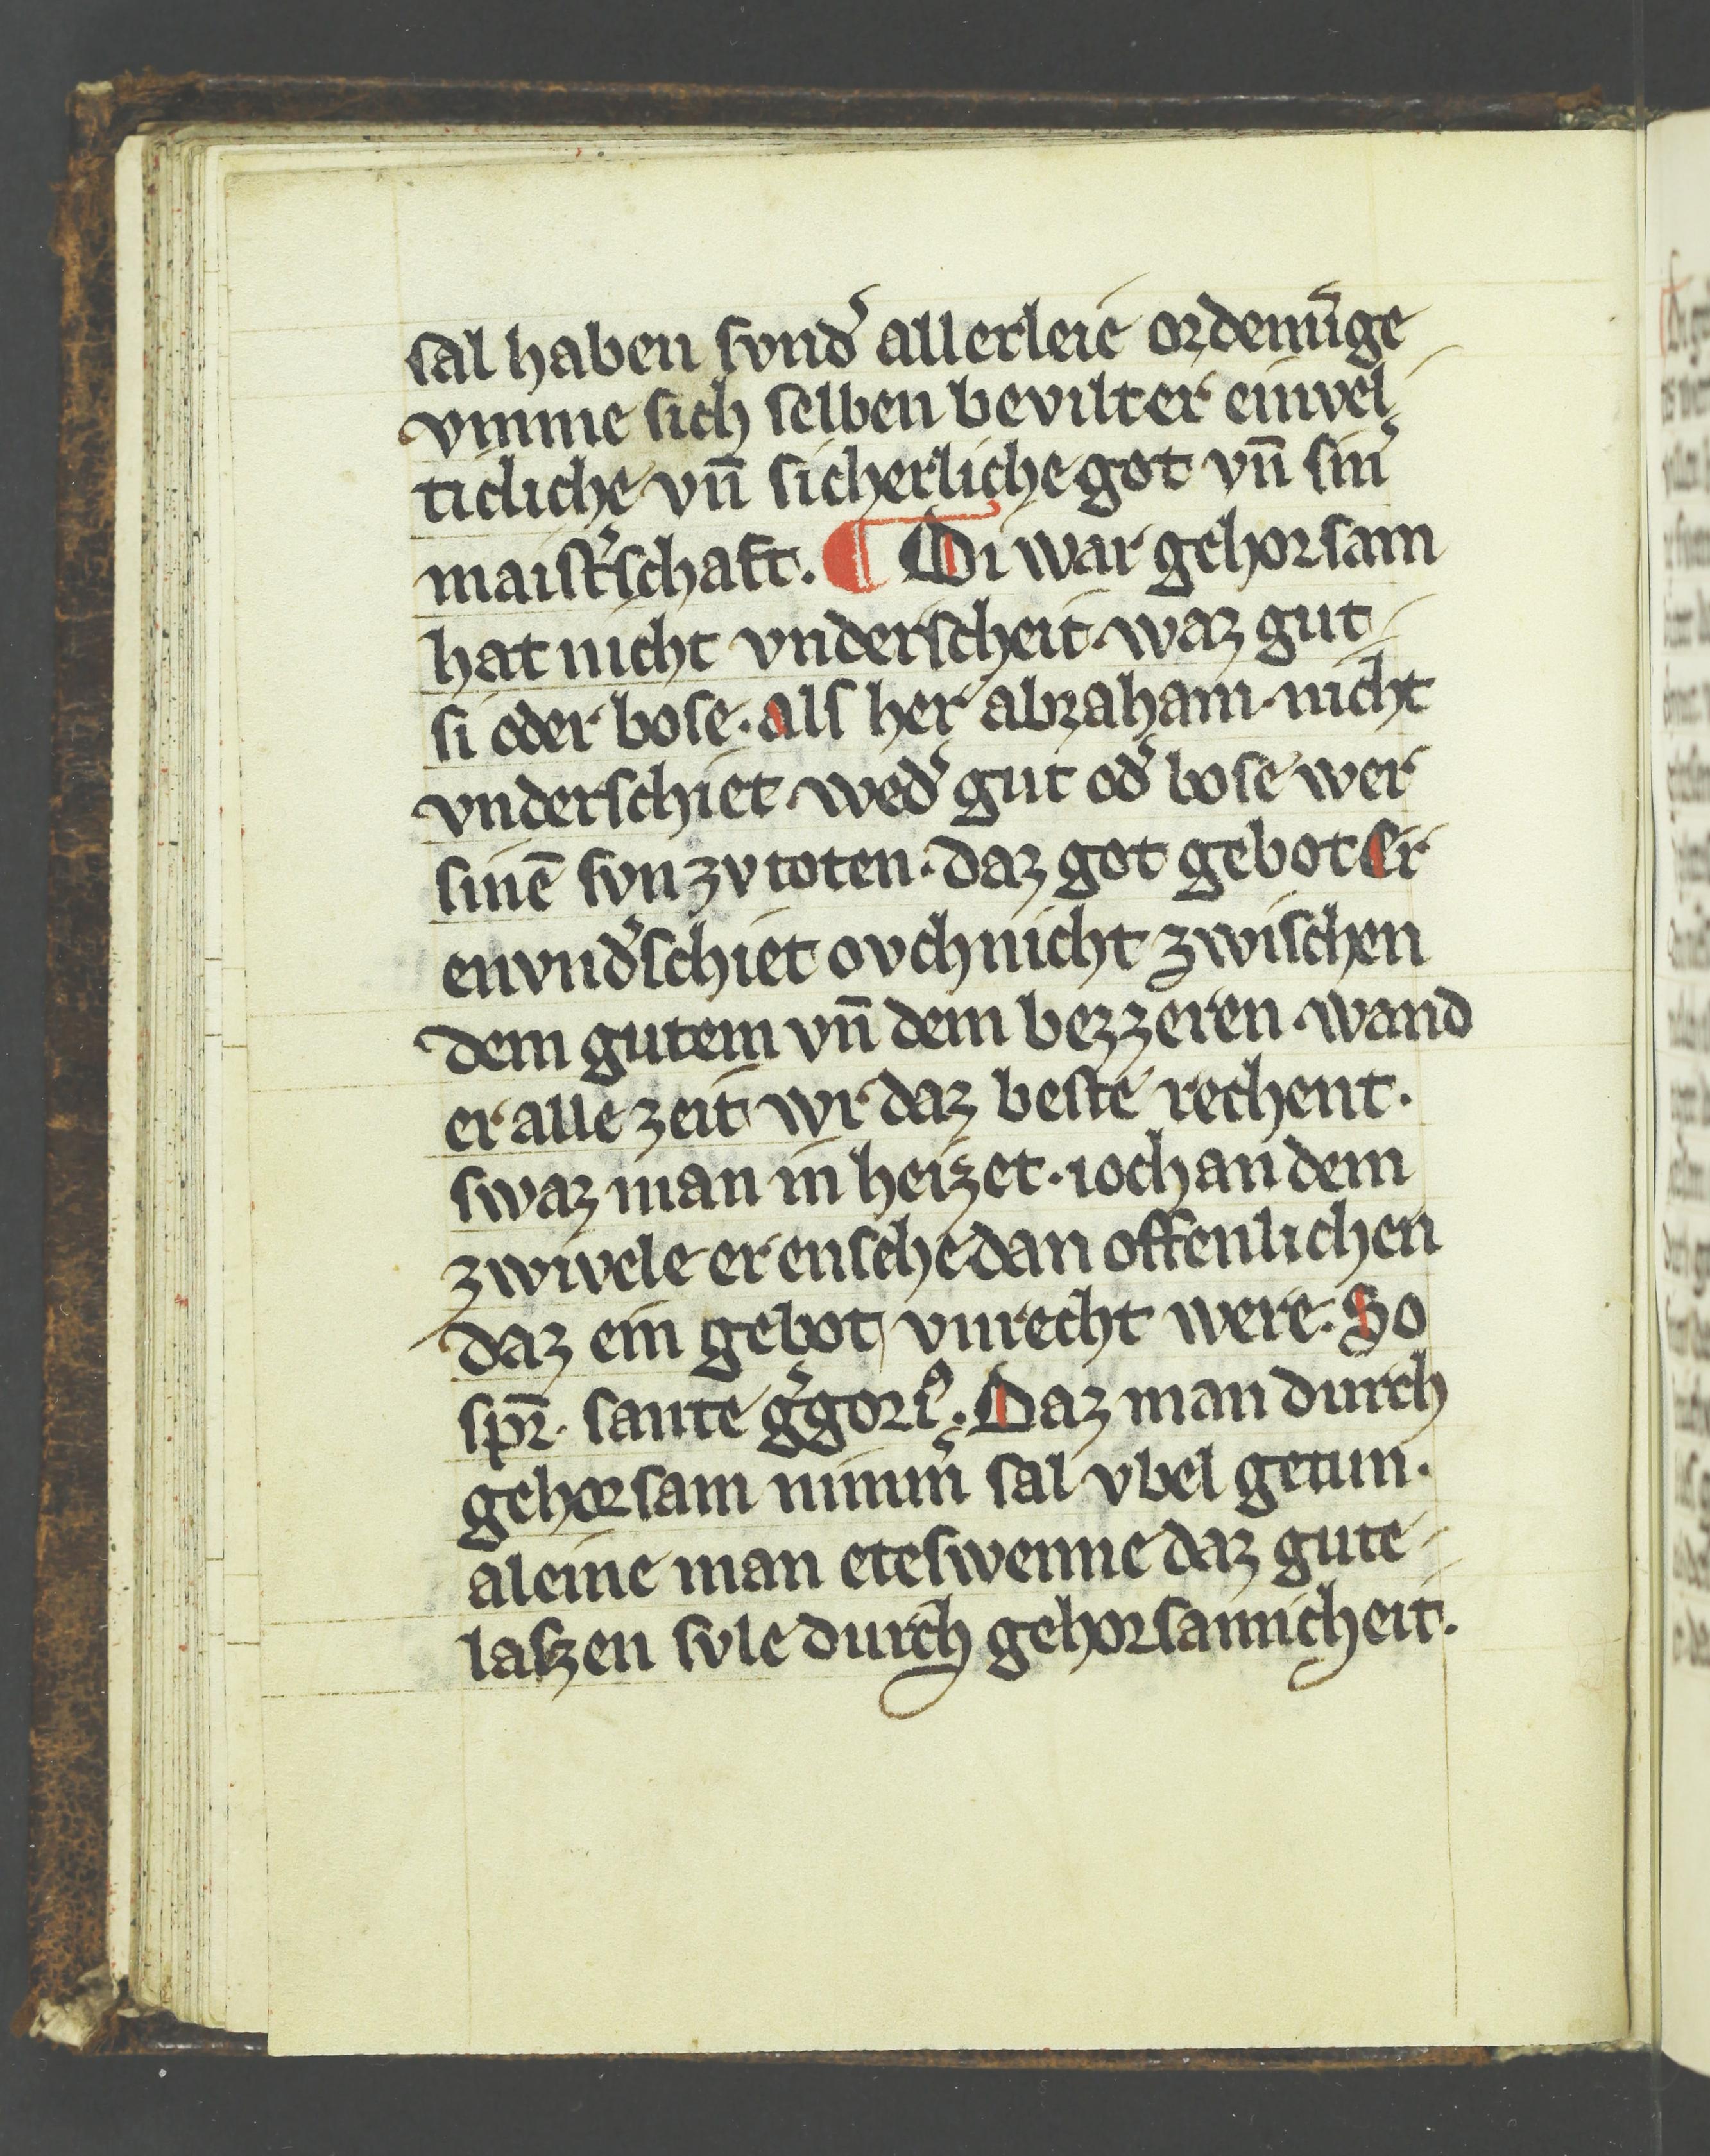 sal haben svnd͛ allerleie ordenūge
vmme sich selben bevilt er einvel
ticliche vn̄ sicherliche got vn̄ sin͛
maist͛schaft. ¶ Di war gehorsam
hat nicht vnderscheit. waz gut
si oder bose. als her abraham. nicht
vnderschiet. wed͛ gut od͛ bose wer
sinē svn zv toten. daz got gebot Er
envnd͛schiet ovch nicht zwischen
dem gutem vn̄ dem bezzeren. wand
er alle zeit vvr daz beste rechent.
swaz man in heizet. ioch an dem
zwivele er ensche dan offenlichen
daz ein gebot vnrecht were. So
spr̄. sante g͛goriꝰ. Daz man durch
gehorsam nimm͛ sal vbel getun.
aleine man eteswenne daz gute
laszen svle durch gehorsamicheit.